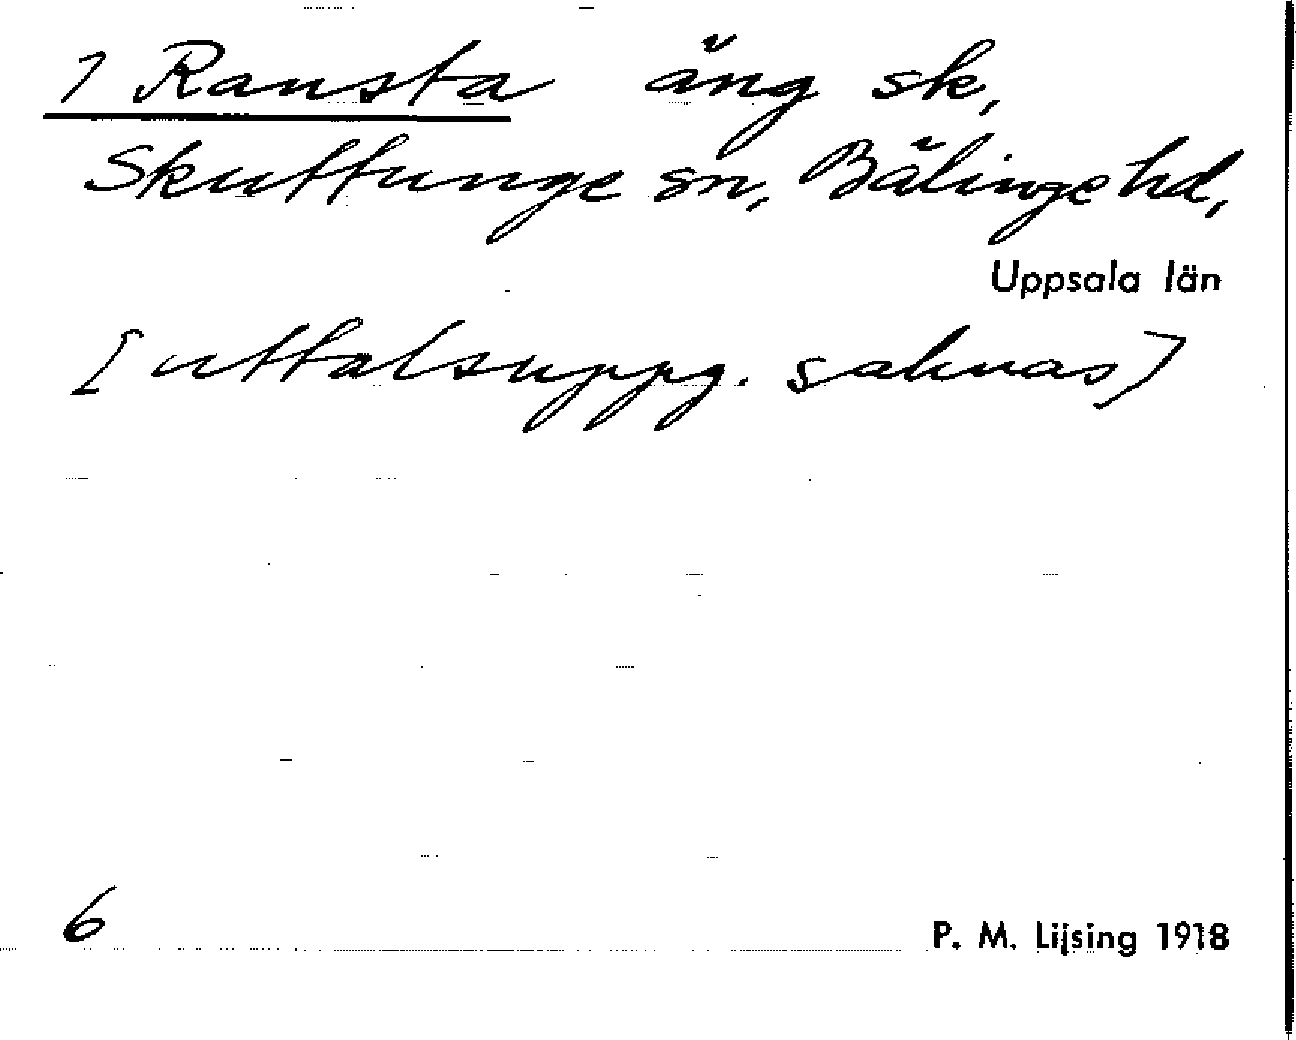 1 Ransta äng sk,
Skuttunge sn, Bälinge hd,
Uppsala län
[uttalsuppg. saknas]
6
P. M. Lijsing 1918